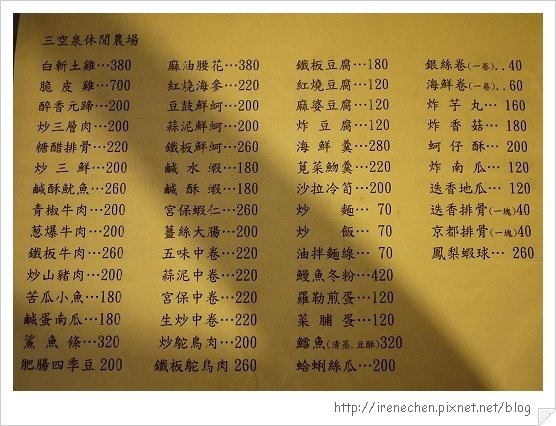 三空泉休閒農場
白斬土雞…380
脆皮雞…700
醉香元蹄…200
炒三層肉…200
糖醋排骨…220
炒三鮮…200
鹹酥魷魚…260
青椒牛肉…200
蔥爆牛肉…200
鐵板牛肉…260
炒山豬肉…200
苦瓜小魚…180
鹹蛋南瓜…180
鯊魚條…320
肥腸四季豆 200
麻油腰花…380
紅燒海參…220
豆鼓鮮蚵…200
蒜泥鮮蚵…200
鐵板鮮蚵…260
鹹水蝦…180
鹹酥蝦…180
宮保蝦仁…260
薑絲大腸…200
五味中卷…220
蒜泥中卷…220
宮保中卷…220
生炒中卷…220
炒鴕鳥肉…200
鐵板鴕鳥肉 260
鐵板豆腐…180
紅燒豆腐…120
麻婆豆腐…120
炸豆腐…120
海鮮羹…280
莧菜魩…220
沙拉冷筍…200
炒麵… 70
炒飯… 70
油拌麵線… 70
鰻魚冬粉…420
羅勒煎蛋…120
菜脯蛋…120
鱈魚(清蒸.豆酥)320
蛤蜊絲瓜…200
銀絲卷(一卷)..40
海鮮卷(一卷)..60
炸芋丸… 160
炸香菇… 180
蚵仔酥… 200
炸南瓜… 120
迭香地瓜… 120
迭香排骨(一塊)40
京都排骨(一塊)40
鳳梨蝦球… 260
http://irenechen.pixnet.net/blog